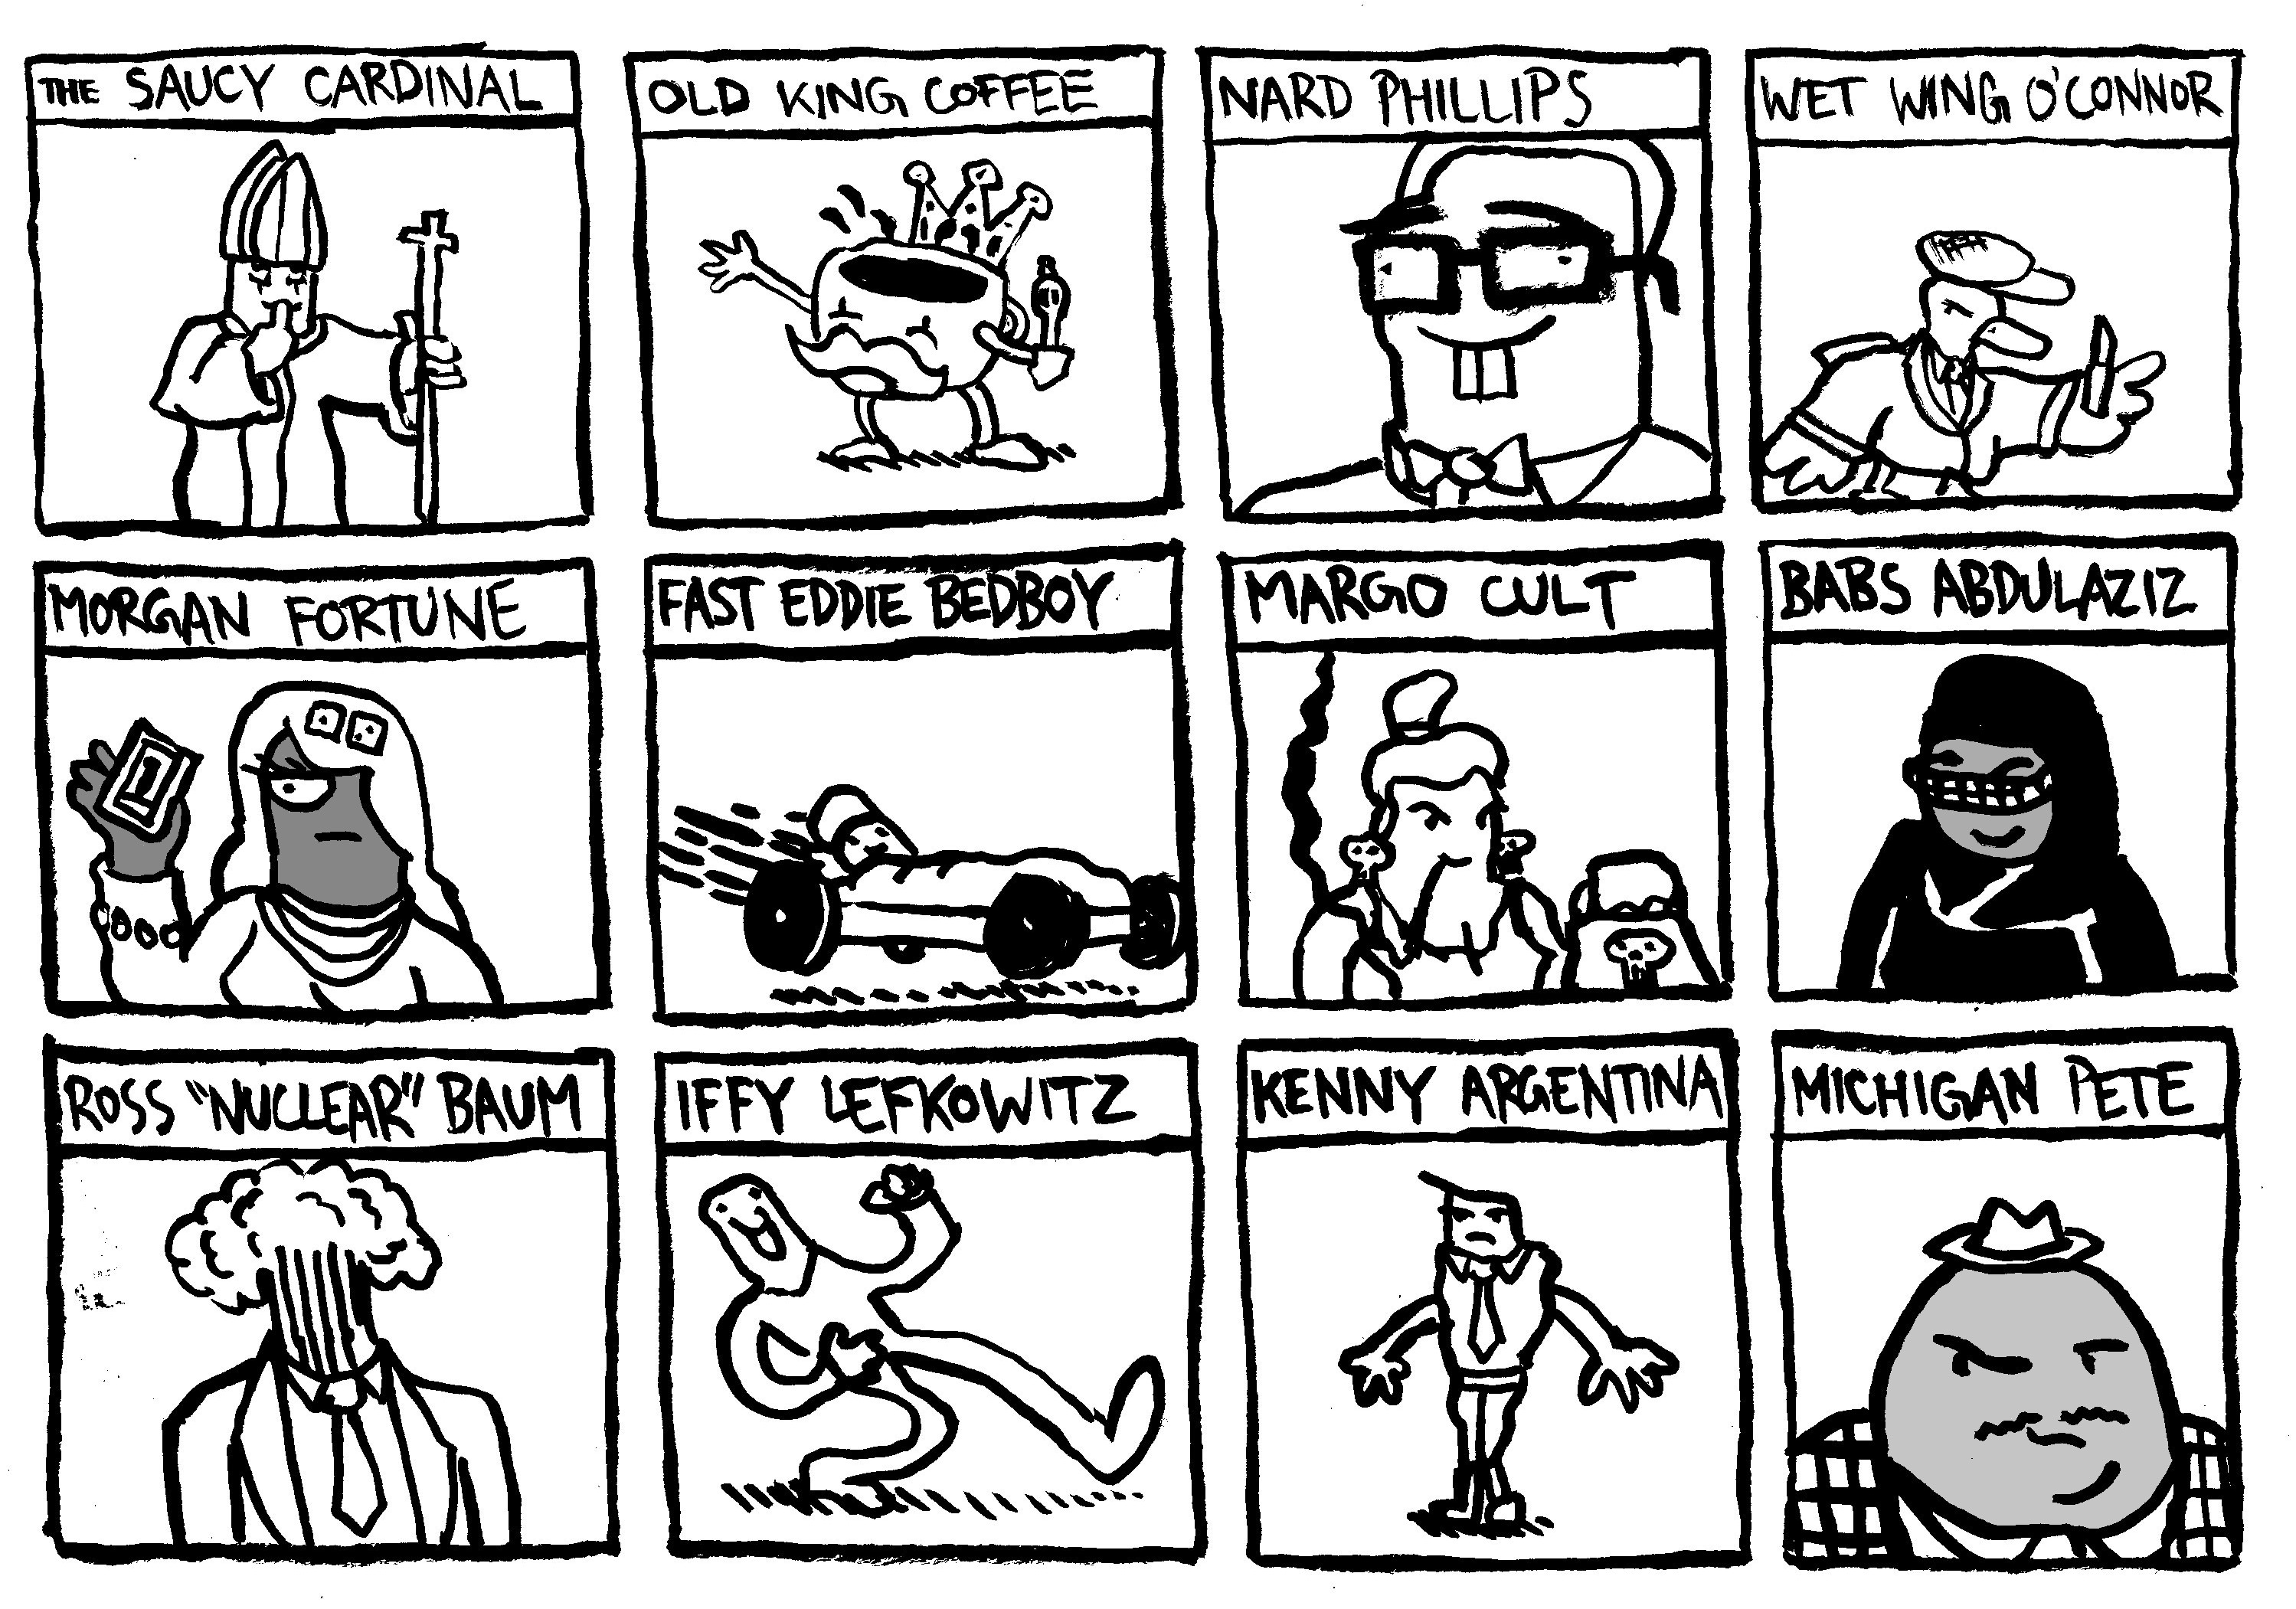 THE SAUCY CARDINAL
OLD KING COFFEE
NARD PHILLIPS
WET WING O'CONNOR
MORGAN FORTUNE
FAST EDDIE BEDBOY
MARGO CULT
BABS ABDULAZIZ
1
ROSS "NUCLEAR" BAUM
IFFY LEFKOWITZ
KENNY ARGENTINA
MICHIGAN PETE